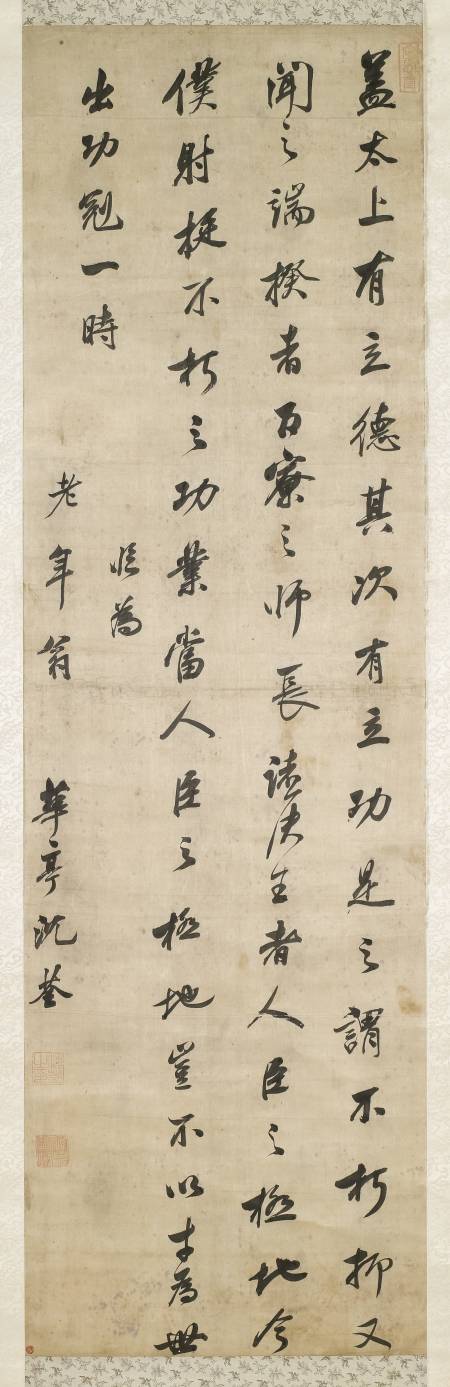 蓋太上有立德其次有立功是之謂不朽抑又
聞之端揆者百寮之師長諸侯王者人臣之極地今
僕射挺不朽之功業當人臣之極地豈不以才為世
出功冠一時
臨為
老年翁
華亭沈荃